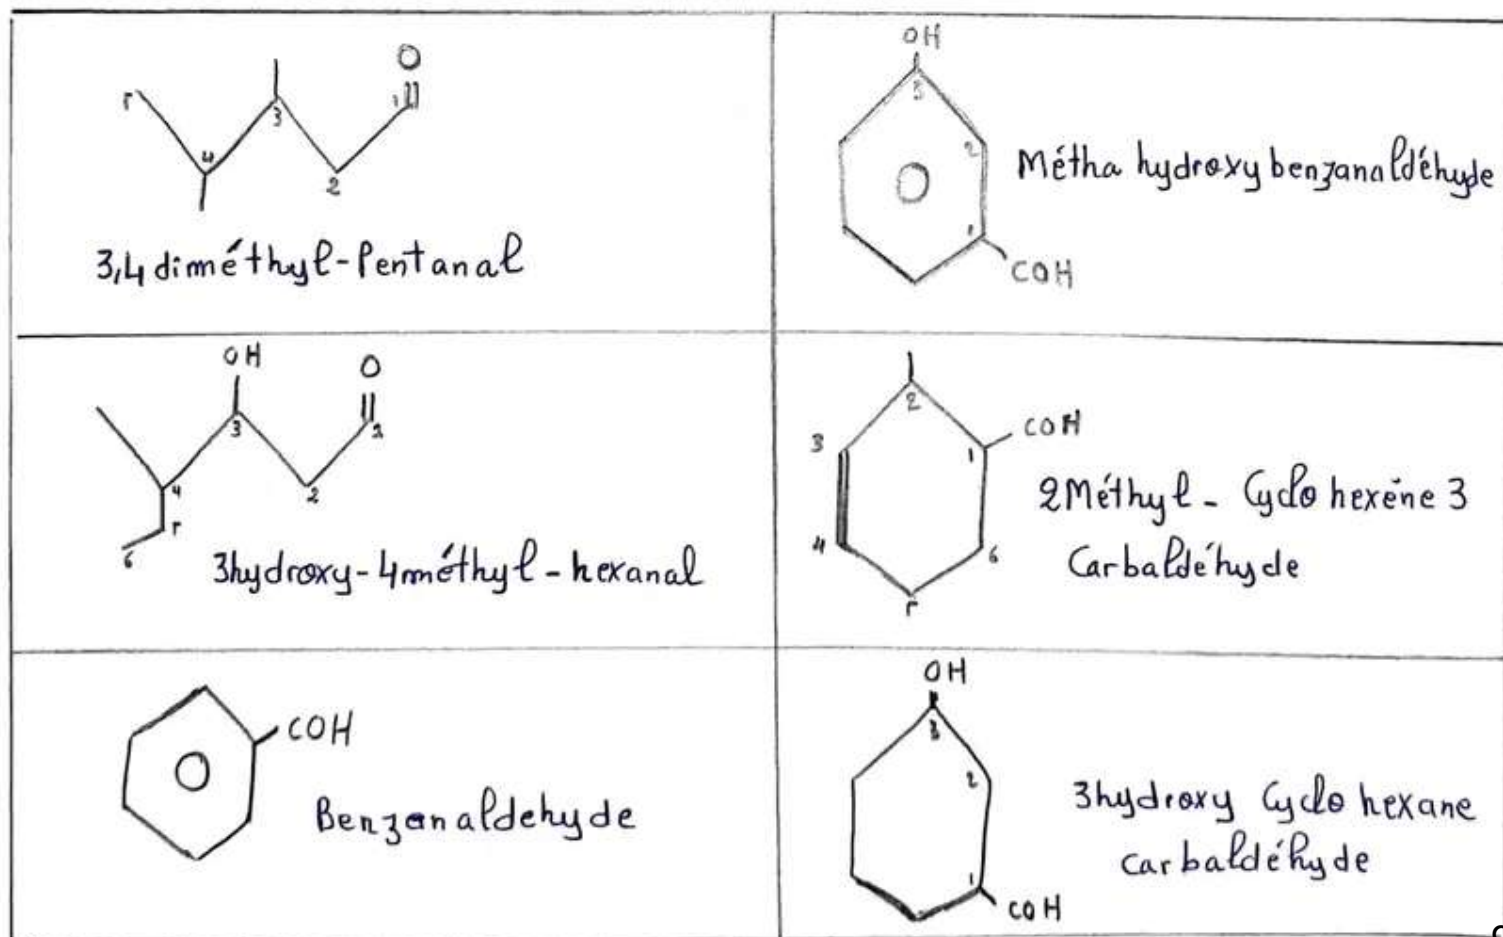 O
r
1
3
4
2
3,4 diméthyl-Pentanal
OH
3
2
1
COH
Métha hydroxy benzanaldéhyde
OH
O
3
1
4
2
r
6
3hydroxy-4méthyl-hexanal
2
3
1
COH
4
6
r
2Méthyl- Cyclo hexène 3
Carbaldéhyde
COH
Benzanaldehyde
OH
3
2
1
COH
3hydroxy Cyclo hexane
carbaldéhyde